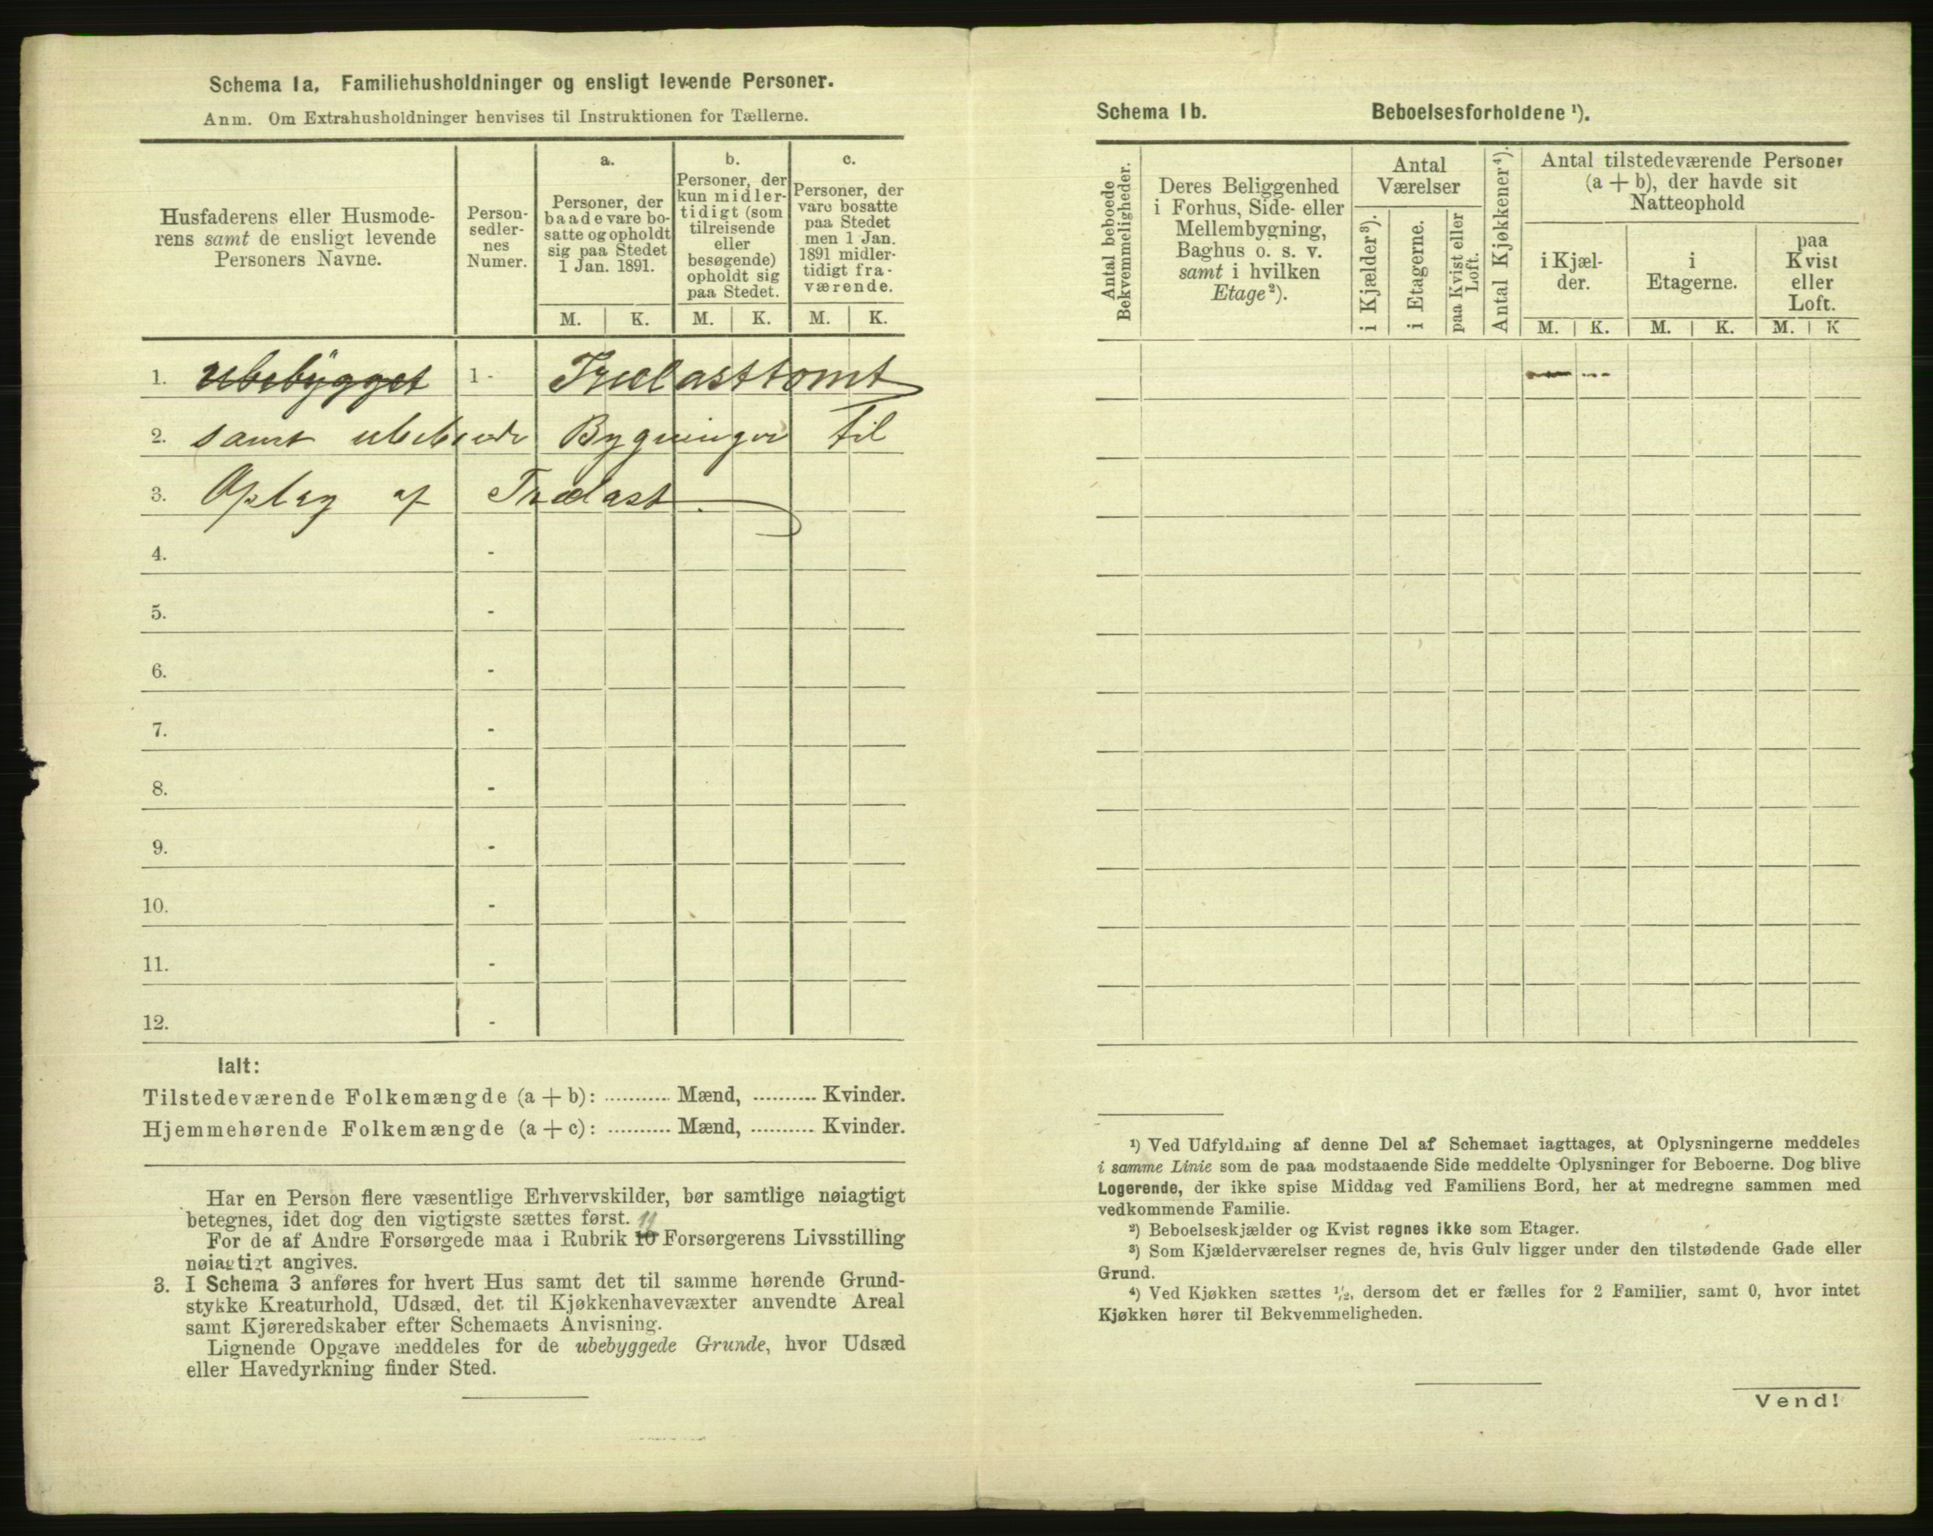 Schema 1a. Familiehusholdninger og ensligt levende Personer.
Anm. Om Extrahusholdninger henvises til Instruktionen for Tællerne.
Husfaderens eller Husmode-
rens samt de ensligt levende
Personers Navne.
Person-
sedler-
nes
Numer.
a.
Personer, der
baade vare bo-
satte og opholdt
sig paa Stedet
1 Jan. 1891.
b.
Personer, der
kun midler-
tidigt (som
tilreisende
eller
besøgende)
opholdt sig
paa Stedet.
c.
Personer, der
vare bosatte
paa Stedet
men 1 Jan.
1891 midler-
tidigt fra-
værende.
M. K. M. K. M. K.
1. Ubebygget 1 - Trælasttomt
2. samt ubeboede Bygninger til
3. Oplag af Trælast.
4. -
5. -
6. -
7. -
8. -
9. -
10. -
11. -
12. -
Ialt:
Tilstedeværende Folkemængde (a + b): .......... Mænd, .......... Kvinder.
Hjemmehørende Folkemængde (a + c): .......... Mænd, .......... Kvinder.
Har en Person flere væsentlige Erhvervskilder, bør samtlige nøiagtigt
betegnes, idet dog den vigtigste sættes først.
11
For de af Andre Forsørgede maa i Rubrik 10 Forsørgerens Livsstilling
nøiagtigt angives.
3. I Schema 3 anføres for hvert Hus samt det til samme hørende Grund-
stykke Kreaturhold, Udsæd, det til Kjøkkenhavevæxter anvendte Areal
samt Kjøreredskaber efter Schemaets Anvisning.
Lignende Opgave meddeles for de ubebyggede Grunde, hvor Udsæd
eller Havedyrkning finder Sted.
Schema 1b. Beboelsesforholdene ¹).
Antal beboede
Bekvemmeligheder.
Deres Beliggenhed
i Forhus, Side- eller
Mellembygning,
Baghus o. s. v.
samt i hvilken
Etage²).
Antal
Værelser
i Kjælder³).
i Etagerne.
paa Kvist eller
Loft.
Antal Kjøkkener⁴).
Antal tilstedeværende Personer
(a + b), der havde sit
Natteophold
i Kjæl-
der.
i
Etagerne.
paa
Kvist
eller
Loft.
M. K. M. K. M. K
¹) Ved Udfyldning af denne Del af Schemaet iagttages, at Oplysningerne meddeles
i samme Linie som de paa modstaaende Side meddelte Oplysninger for Beboerne. Dog blive
Logerende, der ikke spise Middag ved Familiens Bord, her at medregne sammen med
vedkommende Familie.
²) Beboelseskjælder og Kvist regnes ikke som Etager.
³) Som Kjælderværelser regnes de, hvis Gulv ligger under den tilstødende Gade eller
Grund.
⁴) Ved Kjøkken sættes ¹/₂, dersom det er fælles for 2 Familier, samt 0, hvor intet
Kjøkken hører til Bekvemmeligheden.
Vend!